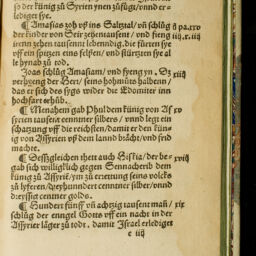 so der künig zů Syrien ynen zůfügt/vnnd er-
lediget sye.
¶ Amasias zoh vß ins Saltztal/vñ schlůg
der kinder von Seir zehentausent/vnd fieng
zehen tausennt lebenndig. die fürtet sye
vff ein spitzen eins felsen/vnd stürtzten sye al
le hynab zů tod.
Joas schlůg Amasiam/vnd fieng yn. So
verhyeng der Herr/ seins hohmůts halbenn/
das er sich des sygs wider die Edomiter inn
hochfart erhůb.
¶ Menahem gab Phul dem künig von As
syrien tausent centtner silbers/vnnd legt ein
schatzung vff die reichsten/damit er den kün
ig von Assyrien vß dem lannd brächt/vnd frid
machte.
¶ Deßgleichen thett auch Eiskia/der be- xviij
gab sich williglich gegen Sennacherib dem
künig zů Assyrie/ym zů errettung seins volcks
zů lyferen/dryhunndert centner silber/vnnd
dreyssig centner golds.
¶ Hundert fünff vñ achtzig tausent mañ/ xix
schlůg der enngel Gotts vff ein nacht in der
Assyrier läger zů tod. damit Israel erlediget
c iiij